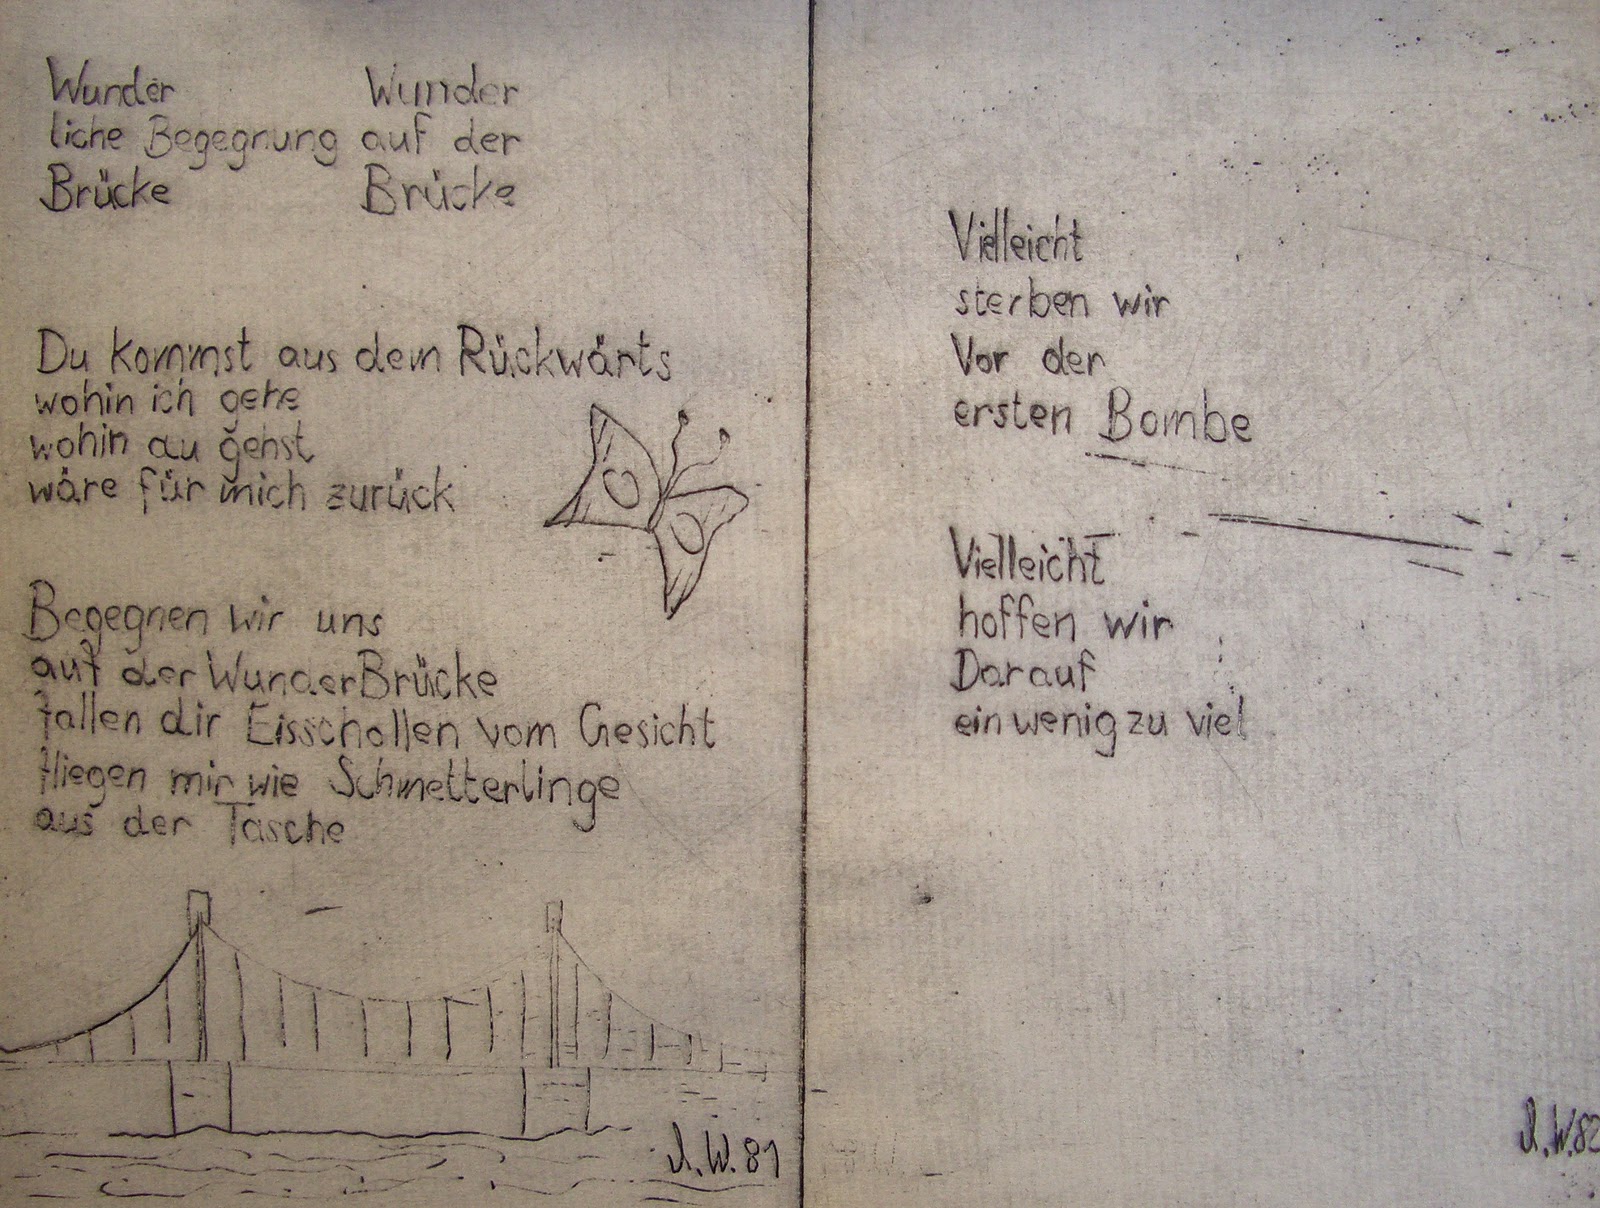 Wunder Wunder
liche Begegnung auf der
Brücke Brücke
Du kommst aus dem Rückwärts
wohin ich gehe
wohin du gehst
wäre für mich zurück
Begegnen wir uns
auf der WunderBrücke
fallen dir Eisschollen vom Gesicht
fliegen mir wie Schmetterlinge
aus der Tasche
W. 81
Vielleicht
sterben wir
Vor der
ersten Bombe
Vielleicht
hoffen wir
Darauf
ein wenig zu viel
W. 82